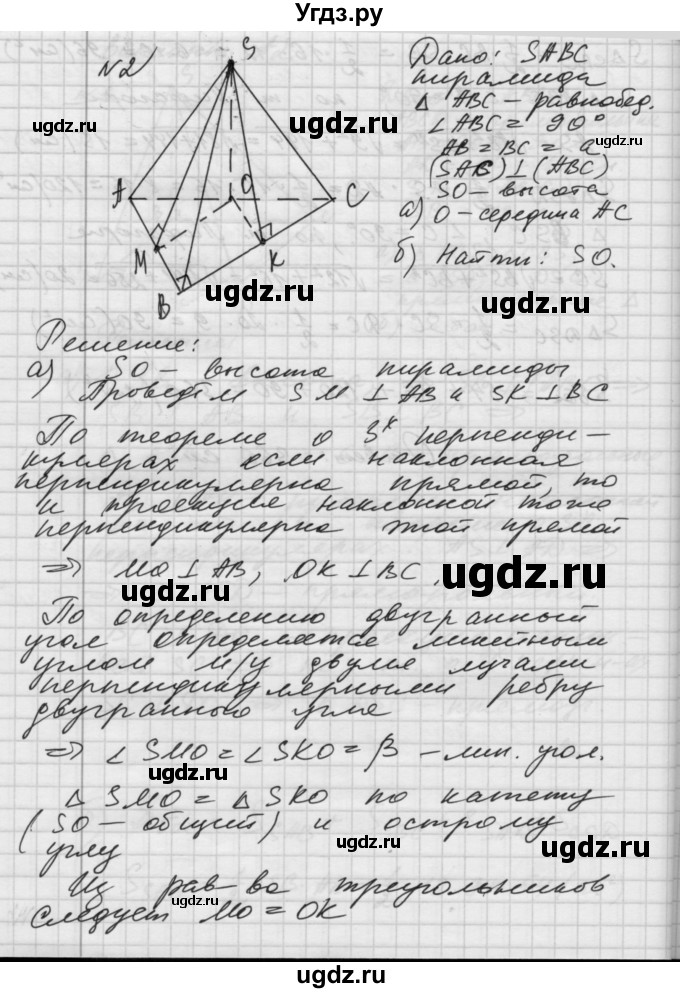 Угдз.ру
N2
S
A
O
C
M
K
B
Дано: SABC
пирамида
△ ABC – равнобед.
∠ ABC = 90°
AB = BC = a
(SAC) ⊥ (ABC)
SO – высота
а) O – середина AC
б) Найти: SO.
ugdz.ru
ugdz.ru
ugdz.ru
ugdz.ru
Решение:
а) SO – высота пирамиды
Проведём SM ⊥ AB и SK ⊥ BC
ugdz.ru
По теореме о 3х перпенди –
кулярах если наклонная
перпендикулярна прямой, то
и проекция наклонной тоже
перпендикулярна этой прямой
ugdz.ru
⇒ MO ⊥ AB, OK ⊥ BC
ugdz.ru
ugdz.ru
По определению двугранный
угол определяется линейным
углом м/у двумя лучами
перпендикулярными ребру
двугранного угла
ugdz.ru
⇒ ∠ SMO = ∠ SKO = β – лин. угол.
△ SMO = △ SKO по катету
(SO – общий) и острому
углу
ugdz.ru
ugdz.ru
Из рав-ва треугольников
следует MO = OK
ugdz.ru
ugdz.ru